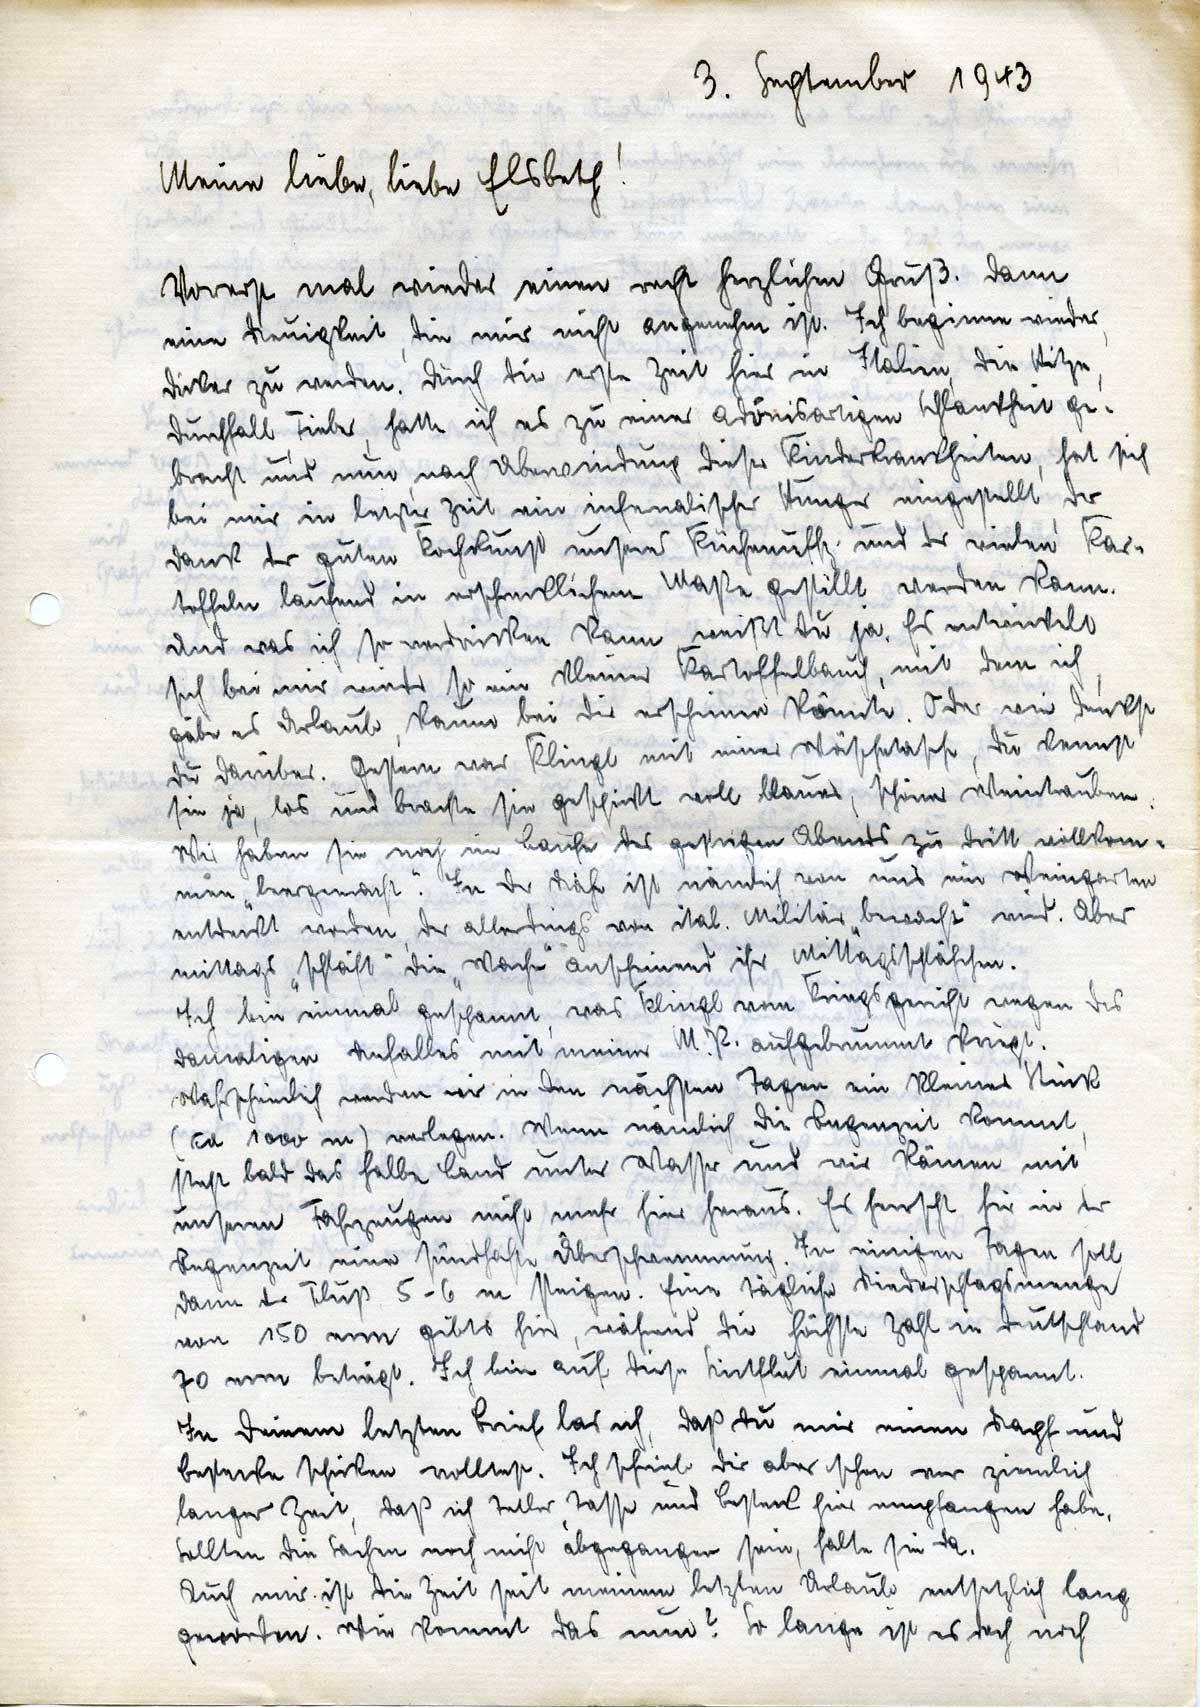 3. September 1943
Meine liebe, liebe Elsbeth!
Vorerst mal wieder einen recht herzlichen Gruß. Dann
eine Neuigkeit, die mir nicht angenehm ist. Ich beginne wieder,
dicker zu werden. Durch die erste Zeit hier in Italien, die Hitze,
Durchfall, Fieber, hatte ich es zu einer adonisartigen Schlankheit ge-
bracht und nun, nach Überwindung dieser Kinderkrankheiten, hat sich
bei mir in letzter Zeit ein infernalischer Hunger eingestellt, der
dank der guten Kochkunst unseres Küchenuffz. und der vielen Kar-
toffeln laufend in erschrecklichem Maße gestillt werden kann.
Und was ich so verdrücken kann, weißt du ja. Es entwickelt
sich bei mir wieder so ein kleiner Kartoffelbauch, mit dem ich,
gäbe es Urlaub, kaum bei dir erscheinen könnte. Oder wie denkst
du darüber. Gestern war Klingl mit einer Wäschetasche, du kennst
sie ja, los und brachte sie geschickt voll blauer, schöner Weintrauben.
Wir haben sie noch im Laufe des gestrigen Abends zu dritt vollkom-
men „leergemacht“. In der Nähe ist nämlich von uns ein Weingarten
entdeckt worden, der allerdings von ital. Militär „bewacht“ wird. Aber
mittags „schläft“ die „Wache“ anscheinend ihr Mittagsschläfchen.
Ich bin einmal gespannt, was Klingl vom Kriegsgericht wegen des
damaligen Unfalles mit meiner M.P. aufgebrummt kriegt.
Wahrscheinlich werden wir in den nächsten Tagen ein kleines Stück
(ca 1000 m) verlegen. Wenn nämlich die Regenzeit kommt,
steht bald das halbe Land unter Wasser und wir kämen mit
unseren Fahrzeugen nicht mehr hier heraus. Es herrscht hier in der
Regenzeit eine sündhafte Überschwemmung. In einigen Tagen soll
dann der Fluß 5-6 m steigen. Eine tägliche Niederschlagsmenge
von 150 mm gibts hier, während die höchste Zahl in Deutschland
70 mm beträgt. Ich bin auf diese Sintflut einmal gespannt.
In Deinem letzten Brief las ich, daß du mir einen Napf und
Bestecke schicken wolltest. Ich schrieb dir aber schon vor ziemlich
langer Zeit, daß ich Teller, Tasse und Besteck hier empfangen habe.
Sollten die Sachen noch nicht abgegangen sein, halte sie da.
Auch mir ist die Zeit seit meinem letzten Urlaub entsetzlich lang
geworden. Wie kommt das nun? So lange ist es doch noch